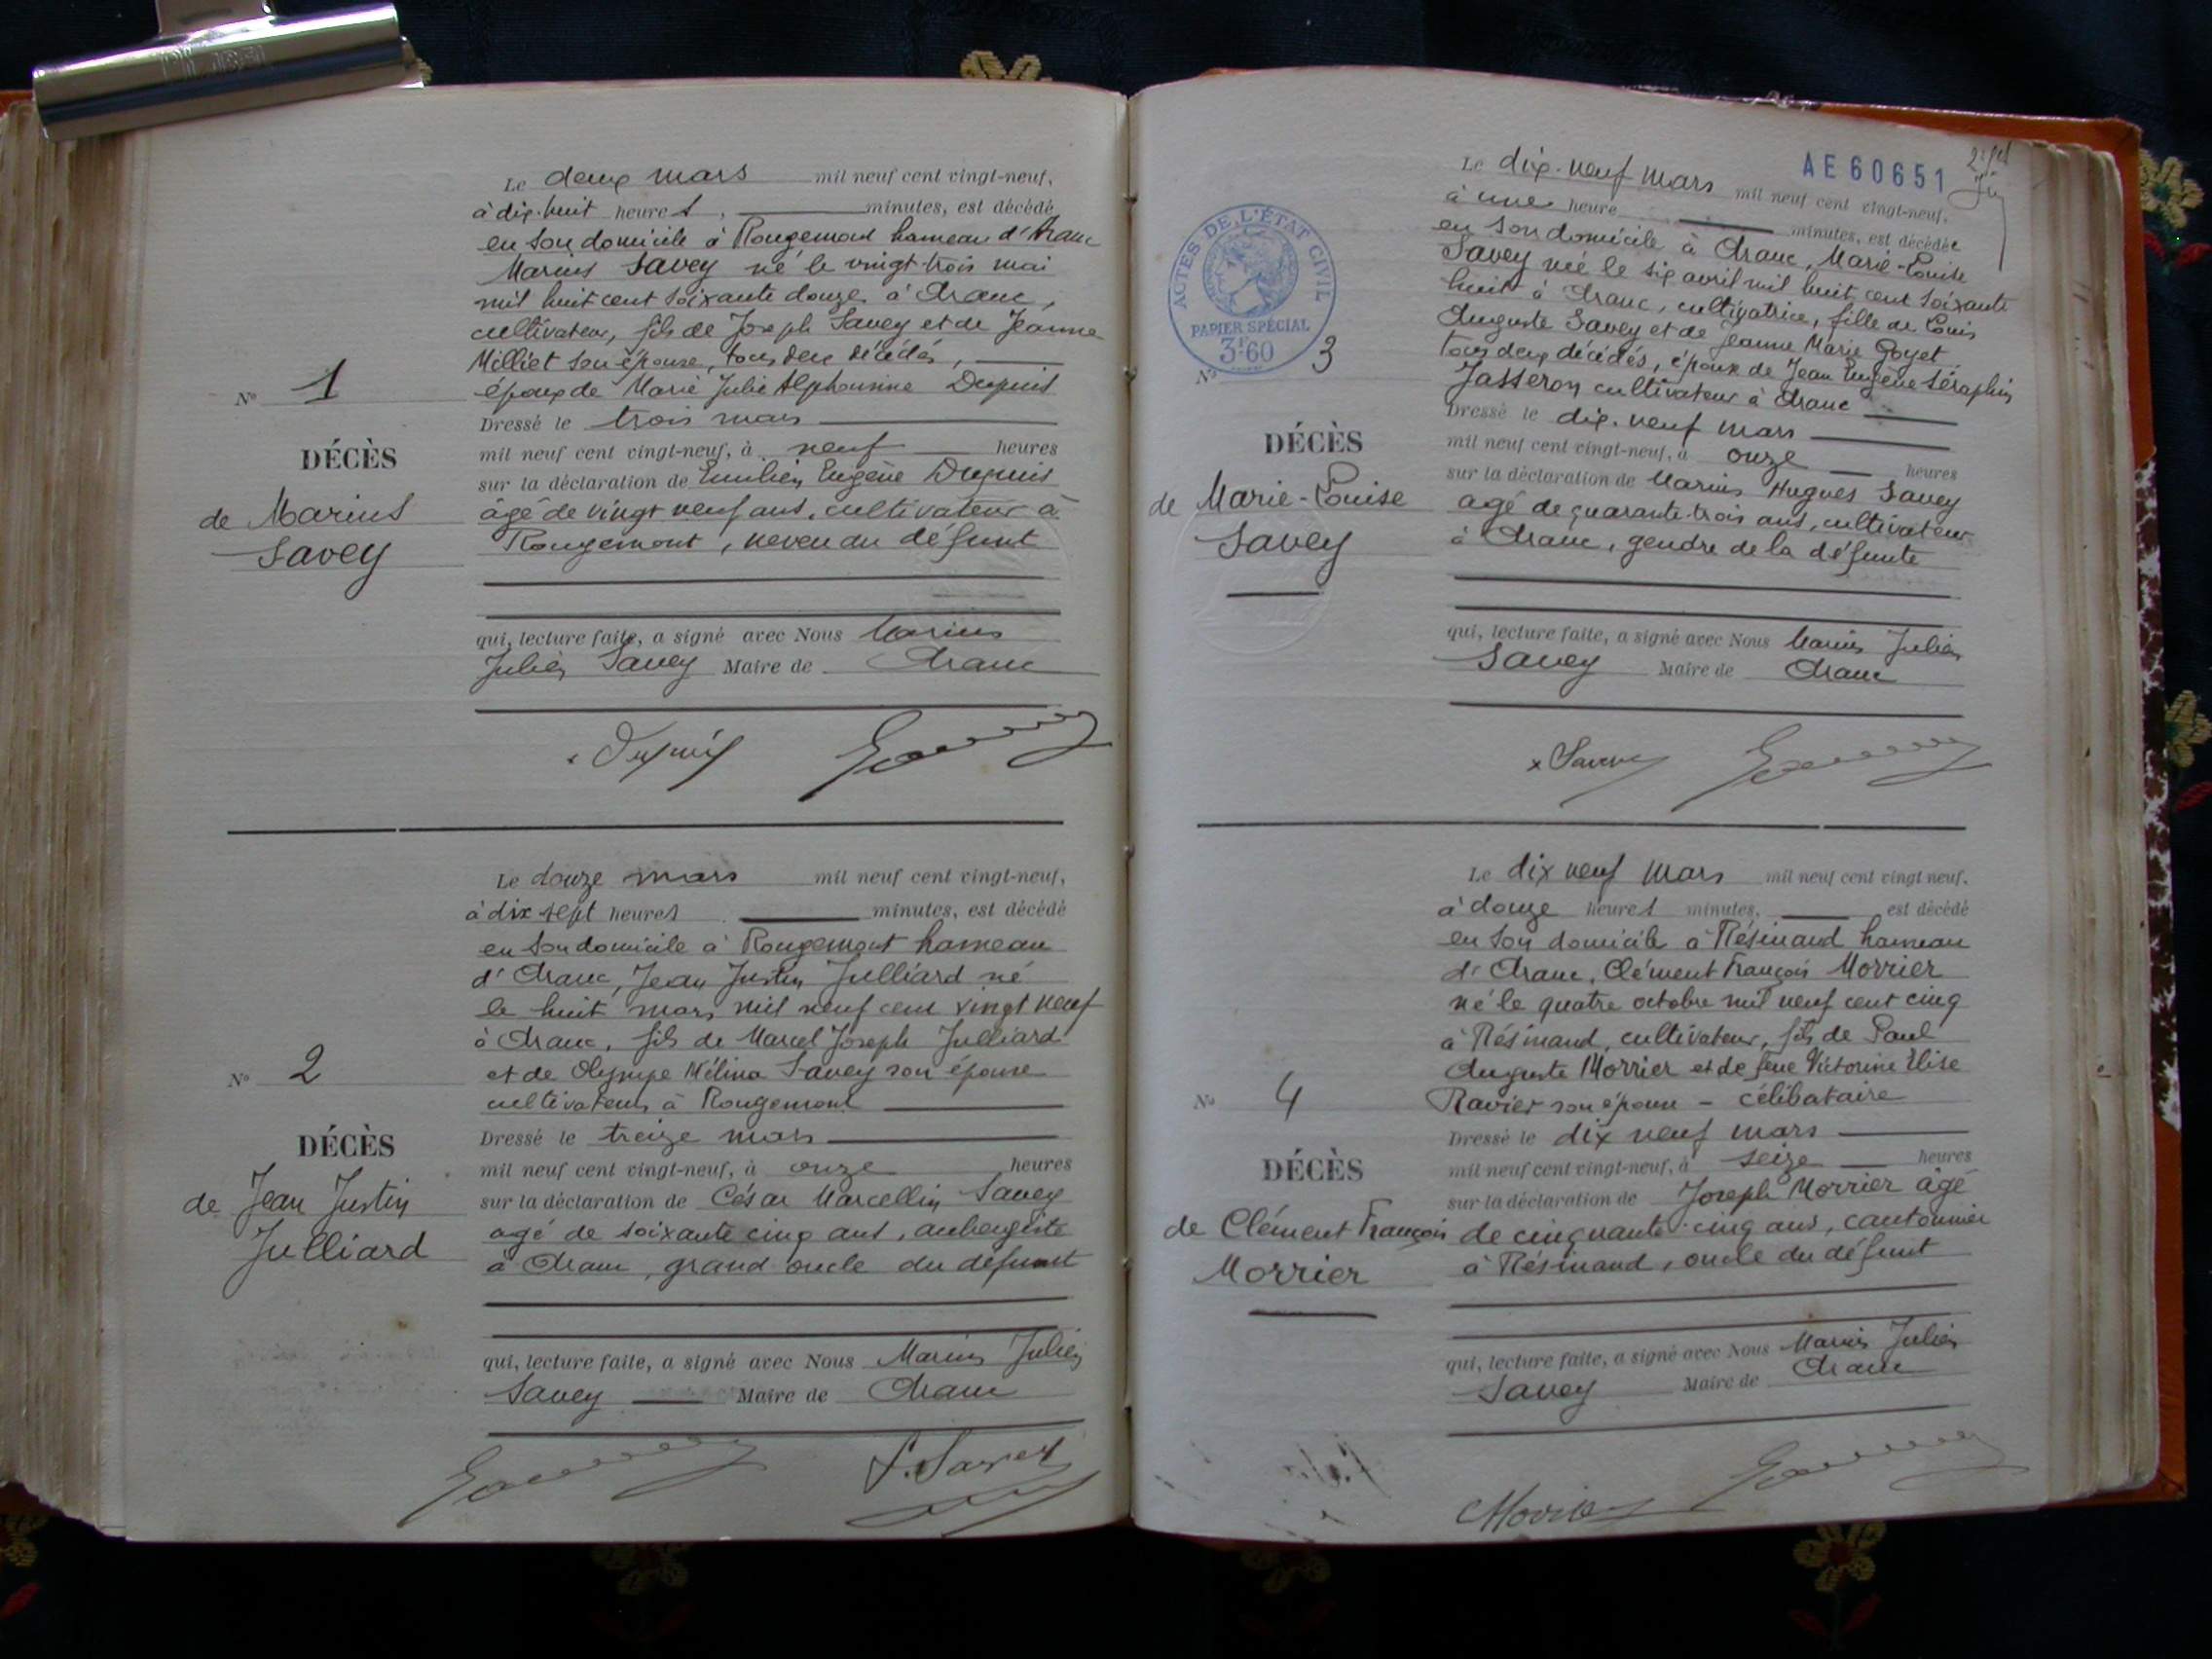 Le deux mars mil neuf cent vingt-neuf,
à dix-huit heures, minutes, est décédé
en son domicile à Rougemont hameau d'Aranc
Marius Savey né le vingt-trois mai
mil huit cent soixante douze à Aranc,
cultivateur, fils de Joseph Savey et de Jeanne
Milliet son épouse, tous deux décédés,
époux de Marie Julie Alphonsine Dupuis
Dressé le trois mars
mil neuf cent vingt-neuf, à neuf heures
sur la déclaration de Emilien Eugène Dupuis
âgé de vingt neuf ans, cultivateur à
Rougemont, neveu du défunt
qui, lecture faite, a signé avec Nous Marius
Julien Savey Maire de Aranc
Dupuis
N° 1
DÉCÈS
de Marius
Savey
Le douze mars mil neuf cent vingt-neuf,
à dix sept heures minutes, est décédé
en son domicile à Rougemont hameau
d'Aranc, Jean Justin Julliard né
le huit mars mil neuf cent vingt neuf
à Aranc, fils de Marcel Joseph Julliard
et de Olympe Mélina Savey son épouse
cultivateurs à Rougemont
Dressé le treize mars
mil neuf cent vingt-neuf, à onze heures
sur la déclaration de César Marcellin Savey
agé de soixante cinq ans, aubergiste
à Aranc, grand oncle du défunt
qui, lecture faite, a signé avec Nous Marius Julien
Savey Maire de Aranc
Savey
N° 2
DÉCÈS
de Jean Justin
Julliard
AE60651
Le dix-neuf mars mil neuf cent vingt-neuf,
à une heure minutes, est décédée
en son domicile à Aranc, Marie-Louise
Savey née le six avril mil huit cent soixante
huit à Aranc, cultivatrice, fille de Louis
Auguste Savey et de Jeanne Marie Goyet
tous deux décédés, épouse de Jean Eugène Séraphin
Jasseron cultivateur à Aranc
Dressé le dix-neuf mars
mil neuf cent vingt-neuf, à onze heures
sur la déclaration de Marius Hugues Savey
agé de quarante-trois ans, cultivateur
à Aranc, gendre de la défunte
qui, lecture faite, a signé avec Nous Marius Julien
Savey Maire de Aranc
x Savey
ACTES DE L'ÉTAT CIVIL
PAPIER SPÉCIAL
3F.60
N° 3
DÉCÈS
de Marie-Louise
Savey
Le dix neuf mars mil neuf cent vingt-neuf,
à douze heures minutes, est décédé
en son domicile à Résinand hameau
d'Aranc, Clément François Morrier
né le quatre octobre mil neuf cent cinq
à Résinand, cultivateur, fils de Paul
Auguste Morrier et de feue Victorine Elise
Ravier son épouse - célibataire
Dressé le dix neuf mars
mil neuf cent vingt-neuf, à seize heures
sur la déclaration de Joseph Morrier âgé
de cinquante-cinq ans, cantonnier
à Résinand, oncle du défunt
qui, lecture faite, a signé avec Nous Marius Julien
Savey Maire de Aranc
Morrier
N° 4
DÉCÈS
de Clément François
Morrier